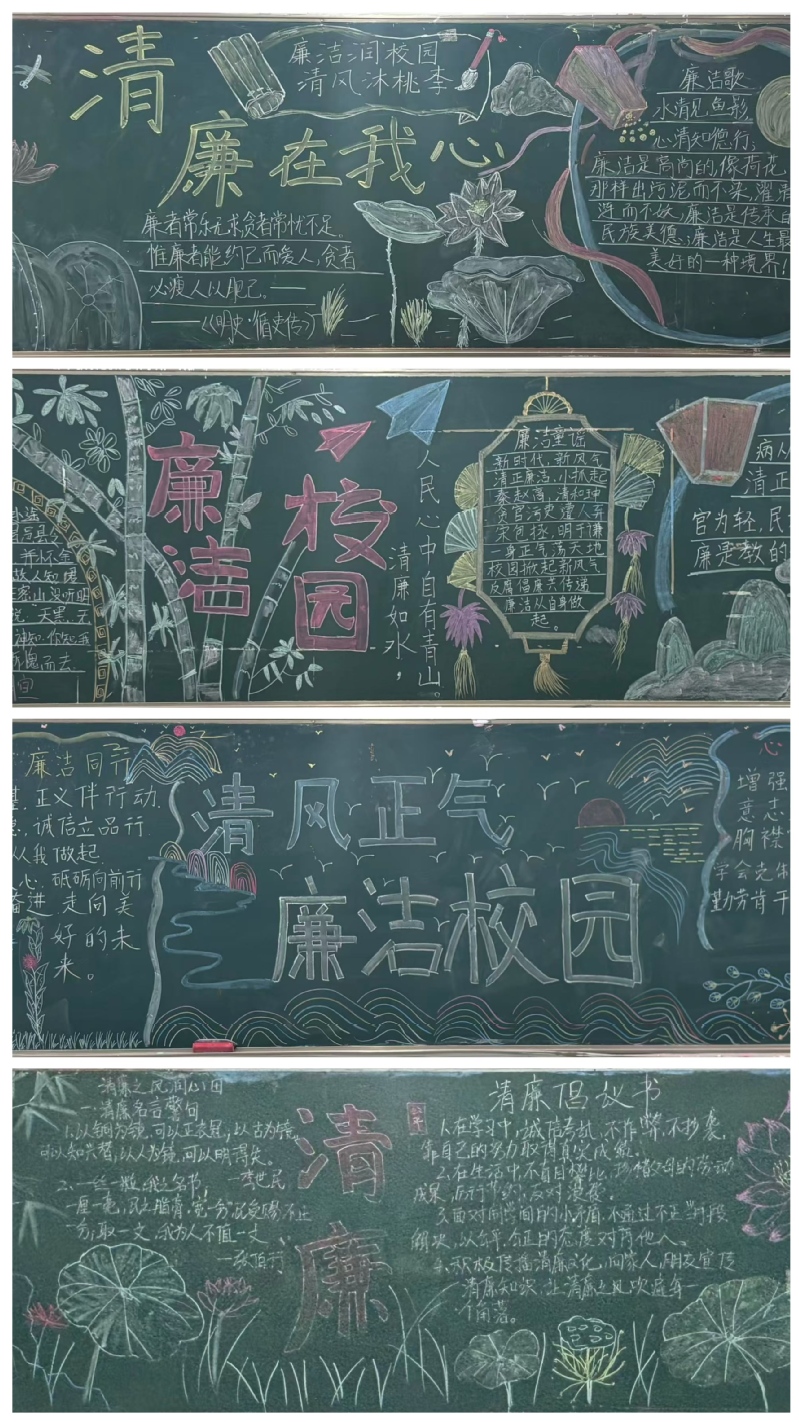 清
廉洁润校园
清风沐桃李
廉在我心
廉者常乐无求,贪者常忧不足。
惟廉者能约己而爱人,贪者
必瘦人以肥己。——
——《明史·循吏传》
廉洁歌
水清见鱼影
心清知德行;
廉洁是高尚的,像荷花
那样出污泥而不染,濯
涟而不妖,廉洁是传承
民族美德;廉洁是人生最
美好的一种境界!
廉洁
校园
人民心中自有青山。
清廉如水,
廉洁童谣
新时代,新风气
清正廉洁,小抓起
秦赵高,清和珅
贪官污吏遭人弃
宋包拯,明于谦
一身正气荡天地
校园掀起新风气
反腐倡廉共传递
廉洁从自身做
起。
病从
清正
官为轻,民
廉是教的
廉洁同行
正义伴行动
诚信立品行
从我做起
心 砥砺向前行
奋进 走向美
好的未
来。
清风正气
廉洁校园
增强
意志
胸襟
学会先
勤劳肯干
清廉之风润心田
一、清廉名言警句
1.以铜为镜,可以正衣冠,以古为镜,
可以知兴替,以人为镜,可以明得失。
——李世民
2.一丝一粒,我之名节,
一厘一毫,民之脂膏,宽一分,民受赐不止
一分;取一文,我为人不值一文。
——张伯行
清
廉
清廉倡议书
1.在学习中,诚信考试,不作弊,不抄袭,
靠自己的努力取得真实成绩。
2.在生活中,不盲目攀比,珍惜父母的劳动
成果,厉行节约,反对浪费。
3.面对同学间的小矛盾,不通过不正当手段
解决,以公平、公正的态度对待他人。
4.积极传播清廉文化,向家人,朋友宣传
清廉知识,让清廉之风吹遍每一
个角落。